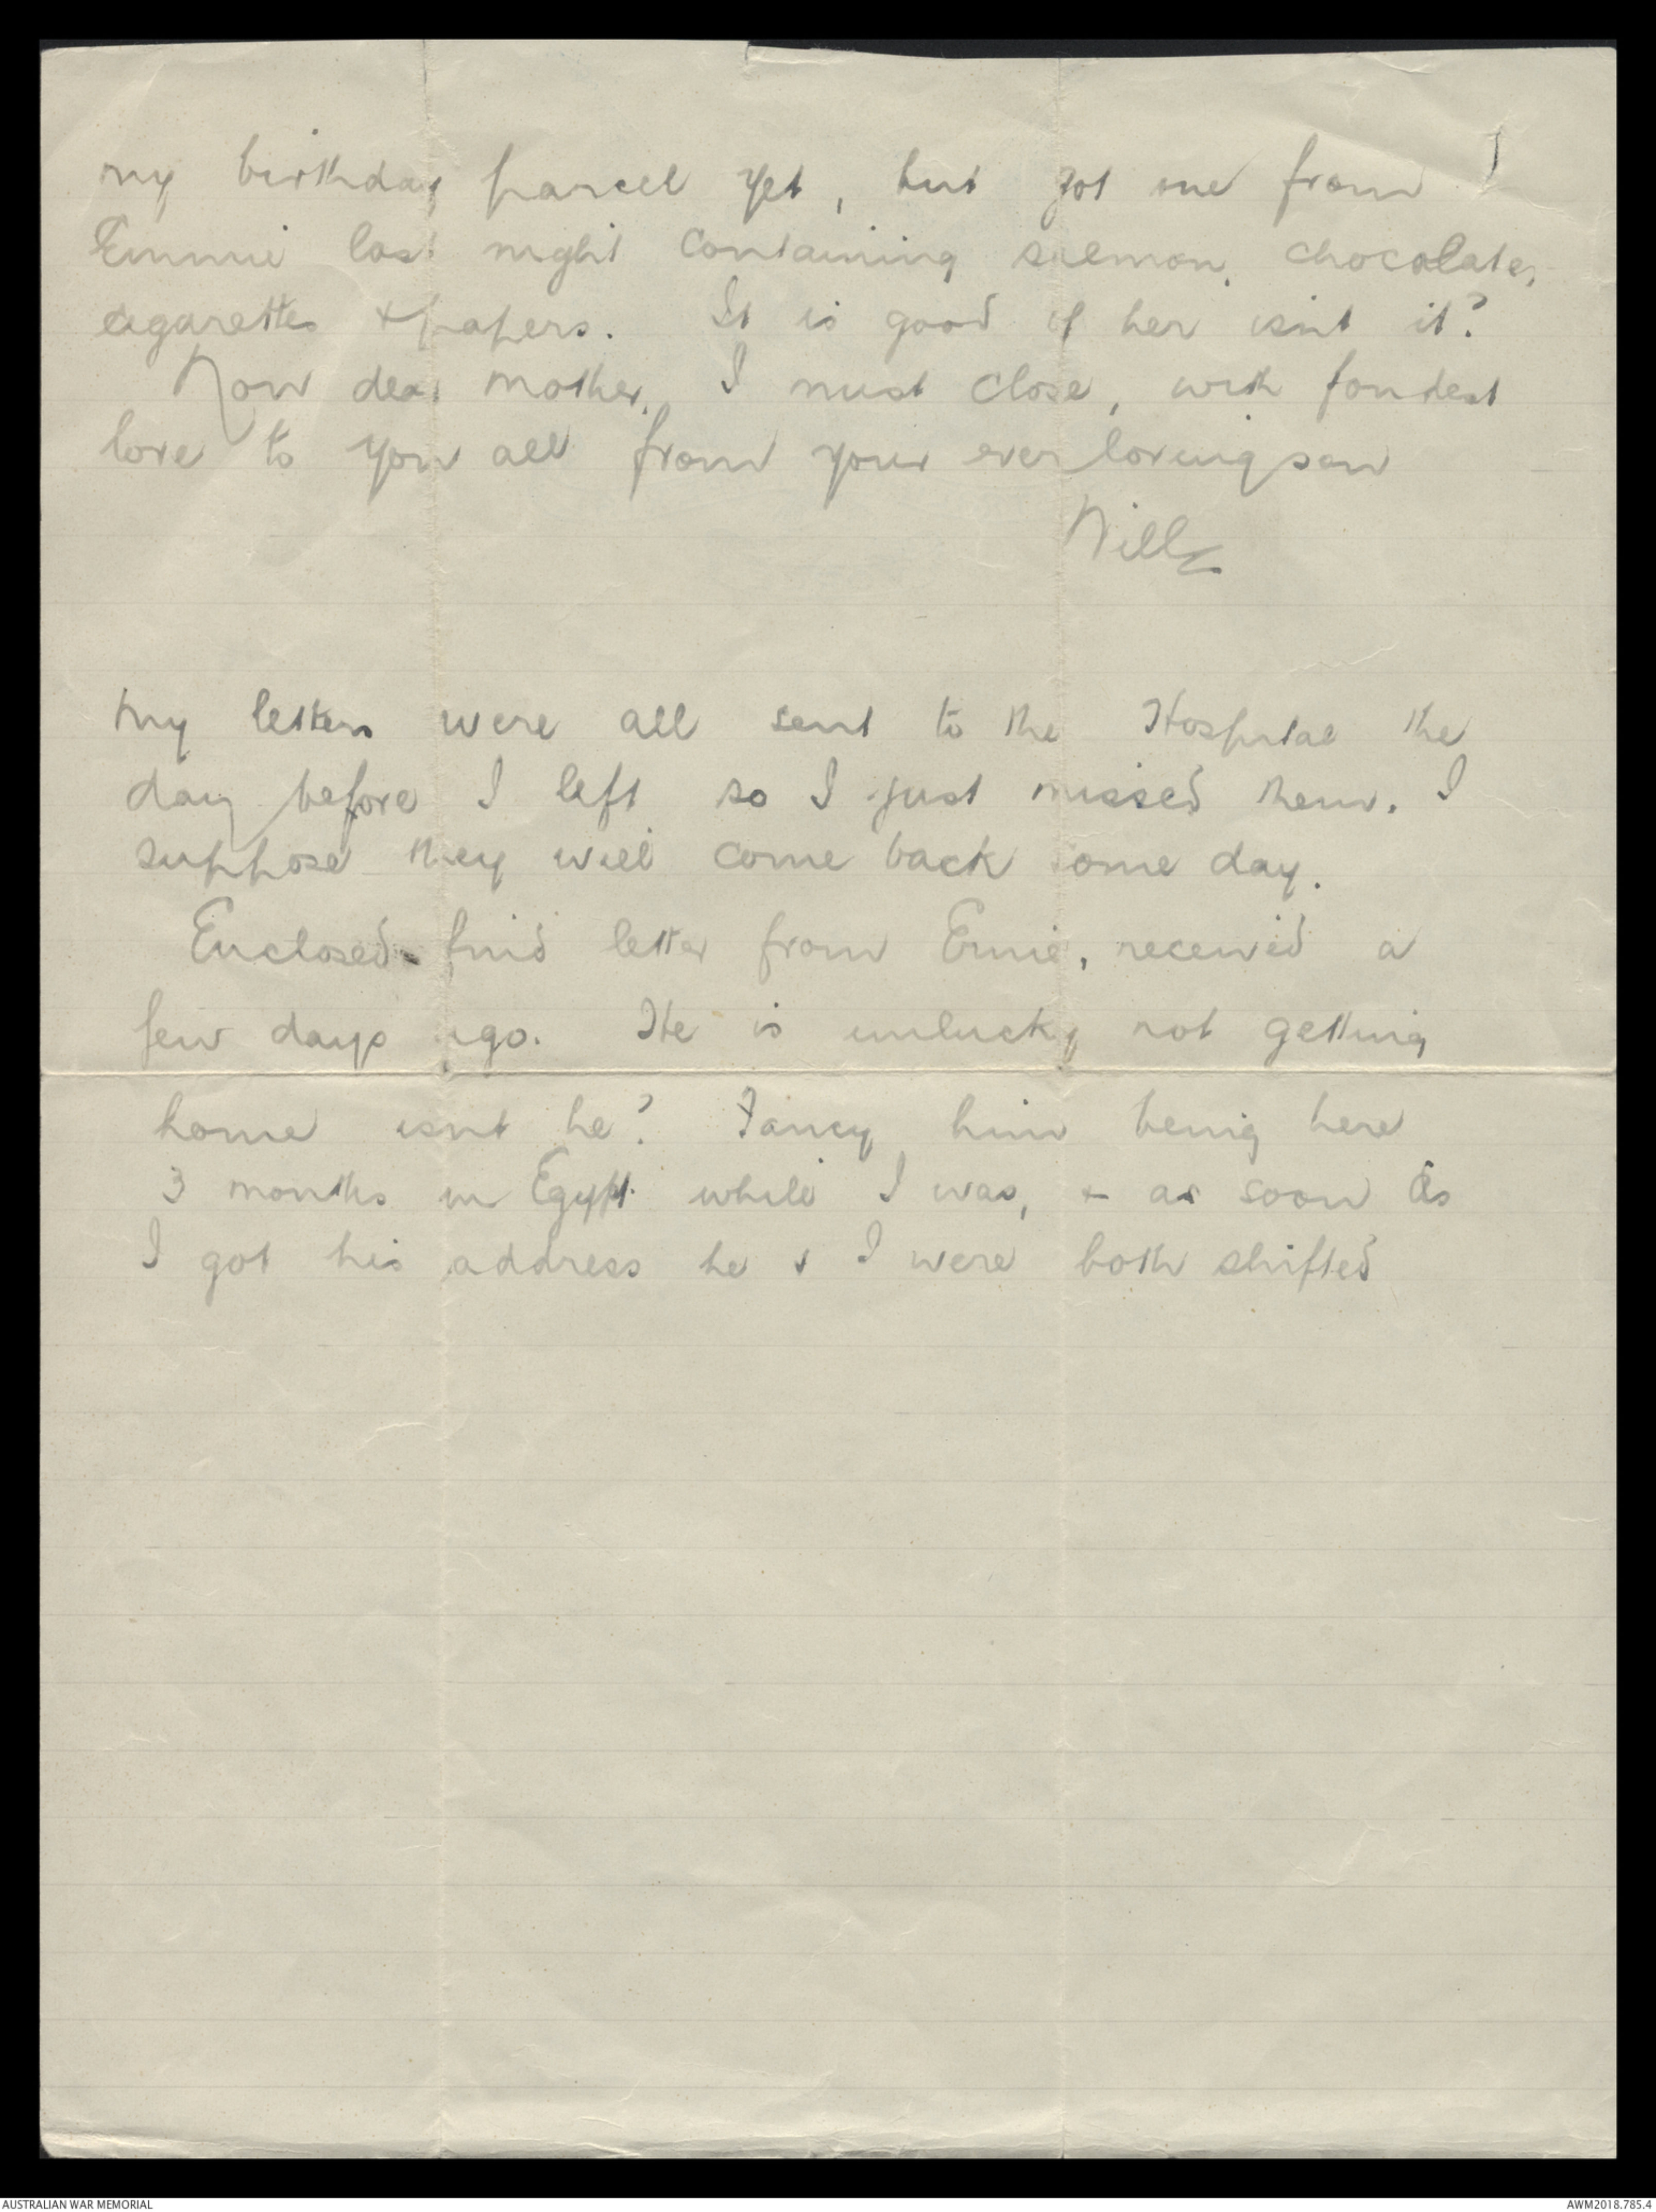 my birthday parcel yet, but got one from J
Emmie last night containing salmon, chocolates,
cigarettes & papers. It is good of her isnt it?
Now dear mother, I must close, with fondest
love to you all from your ever loving son
Will
My letters were all sent to the Hospital the
day before I left so I just missed them. I
suppose they will come back some day.
Enclosed find letter from Ernie, received a
few days ago. He is unlucky not getting
home isnt he? Fancy him being here
3 months in Egypt while I was, & as soon as
I got his address he & I were both shifted
AUSTRALIAN WAR MEMORIAL
AWM2018.785.4